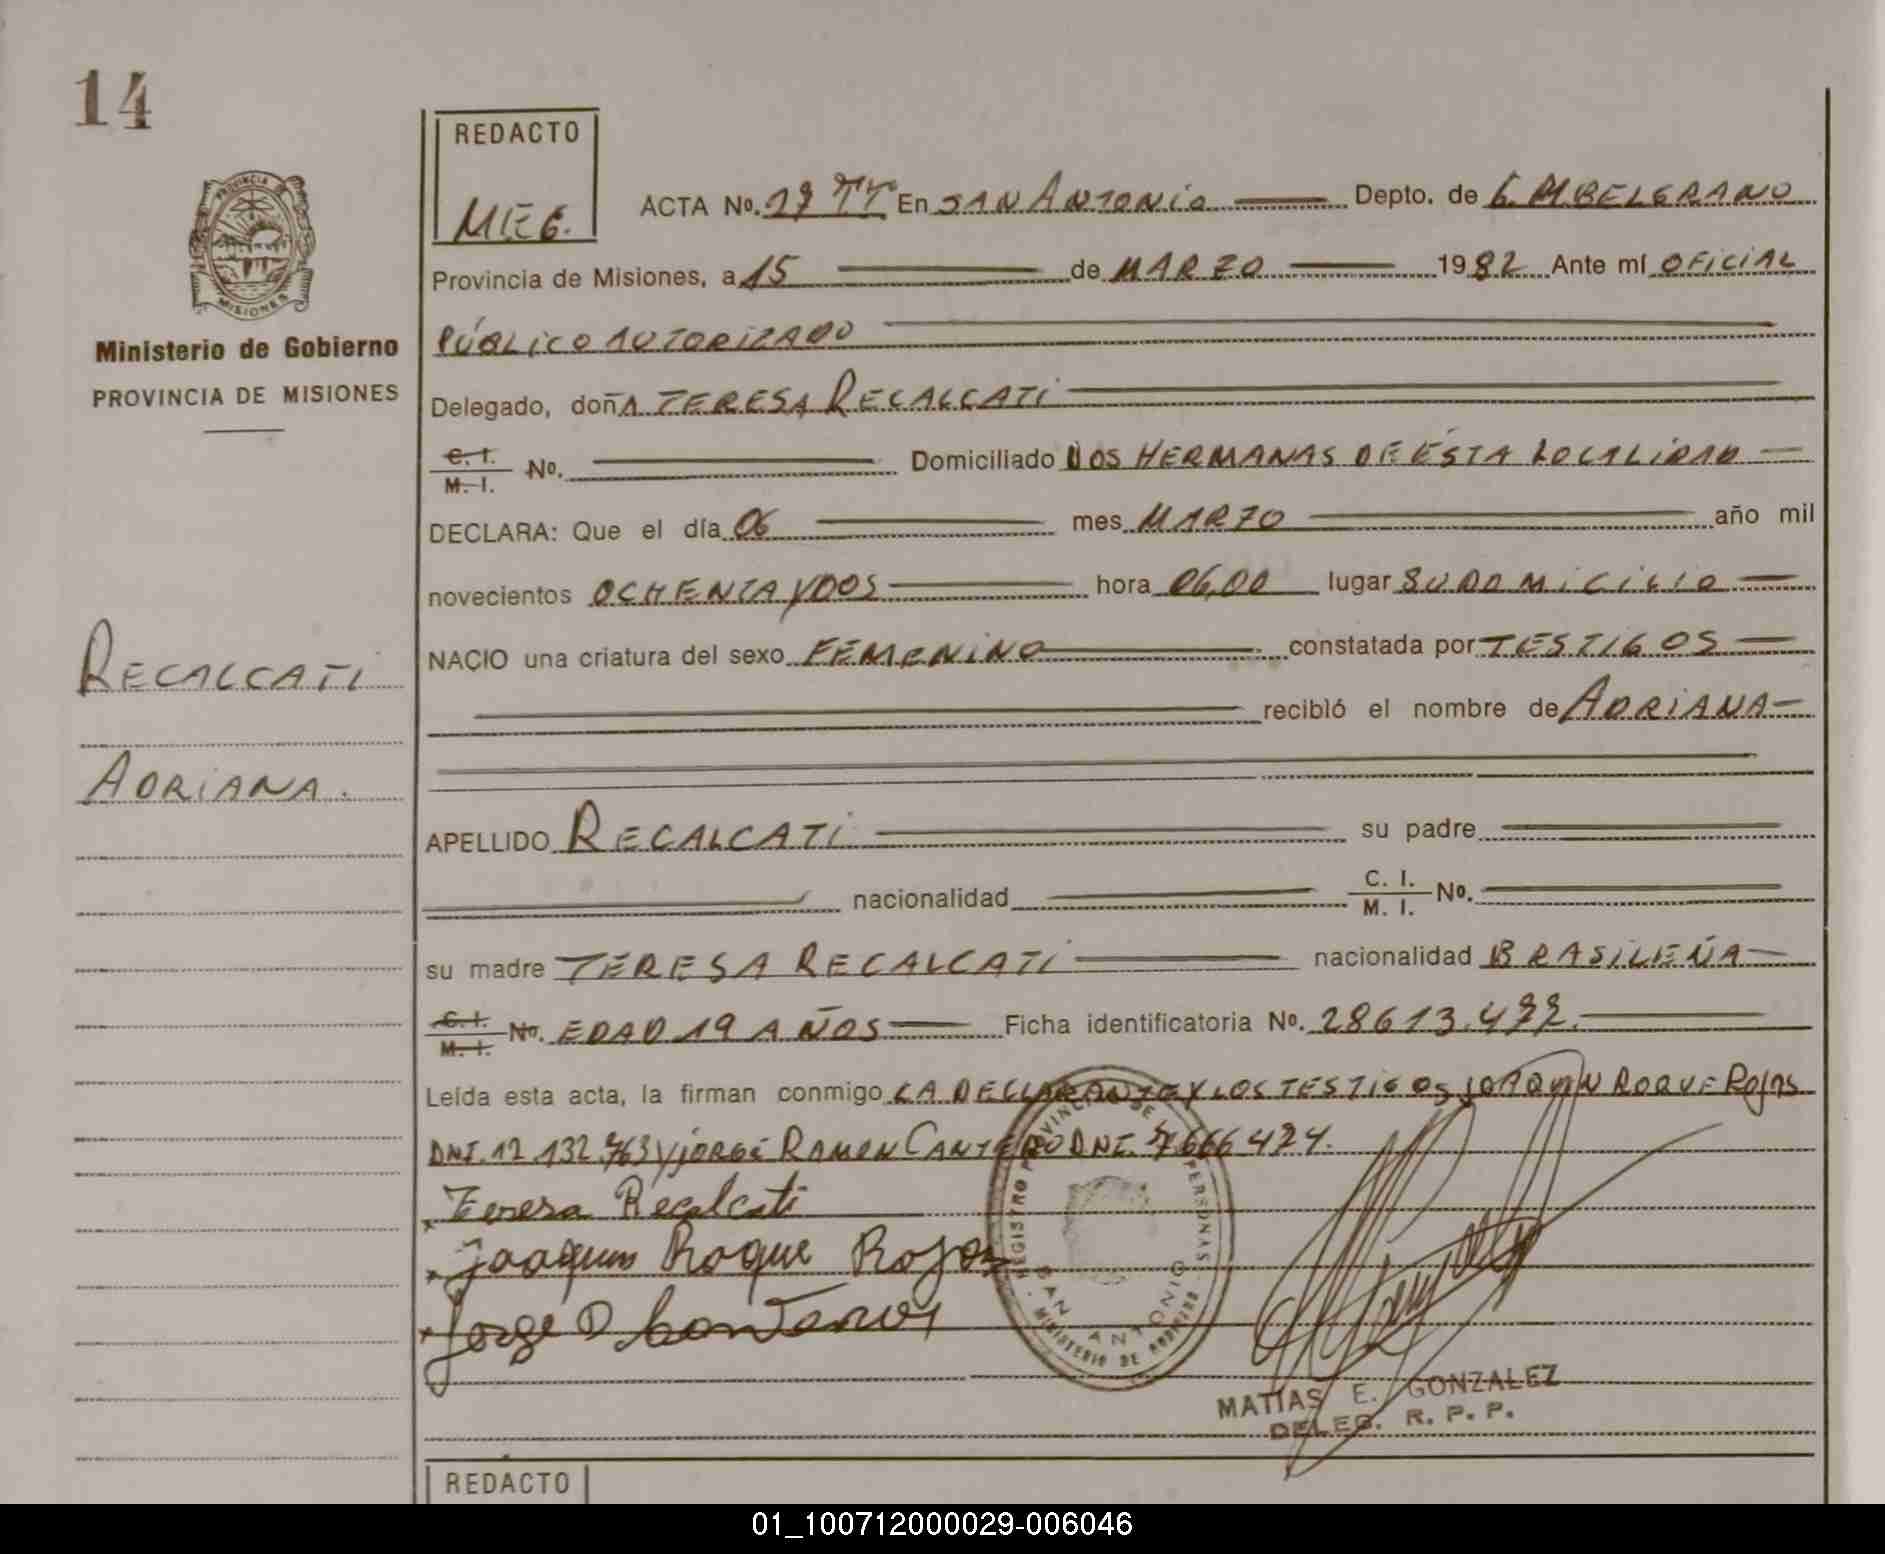 14
REDACTO
MEG.
ACTA No. 27 TT En SAN ANTONIO Depto. de G. M. BELGRANO
PROVINCIA DE
MISIONES
Ministerio de Gobierno
PROVINCIA DE MISIONES
Provincia de Misiones, a 15 de MARZO 1982 Ante mí OFICIAL
PÚBLICO AUTORIZADO
Delegado, doñA TERESA RECALCATI
C. I. M. I. No. Domiciliado DOS HERMANAS DE ÉSTA LOCALIDAD
DECLARA: Que el día 06 mes MARZO año mil
novecientos OCHENTA Y DOS hora 06,00 lugar SU DOMICILIO
NACIO una criatura del sexo FEMENINO constatada por TESTIGOS
RECALCATI
recibió el nombre de ADRIANA
ADRIANA.
APELLIDO RECALCATI su padre
nacionalidad C. I. M. I. No.
su madre TERESA RECALCATI nacionalidad BRASILEÑA
C. I. M. I. No. EDAD 19 AÑOS Ficha identificatoria No. 28613.477.
Leída esta acta, la firman conmigo LA DECLARANTE Y LOS TESTIGOS JOAQUIN ROQUE ROJAS
DNI. 12.132.763 Y JORGE RAMON CANTERO DNI. 7666424.
Teresa Recalcati
Joaquin Roque Rojas
Jorge
REGISTRO PROVINCIAL DE PERSONAS
SAN ANTONIO
MINISTERIO DE GOBIERNO
MATIAS E. GONZALEZ
DELEG. R. P. P.
REDACTO
01_100712000029-006046